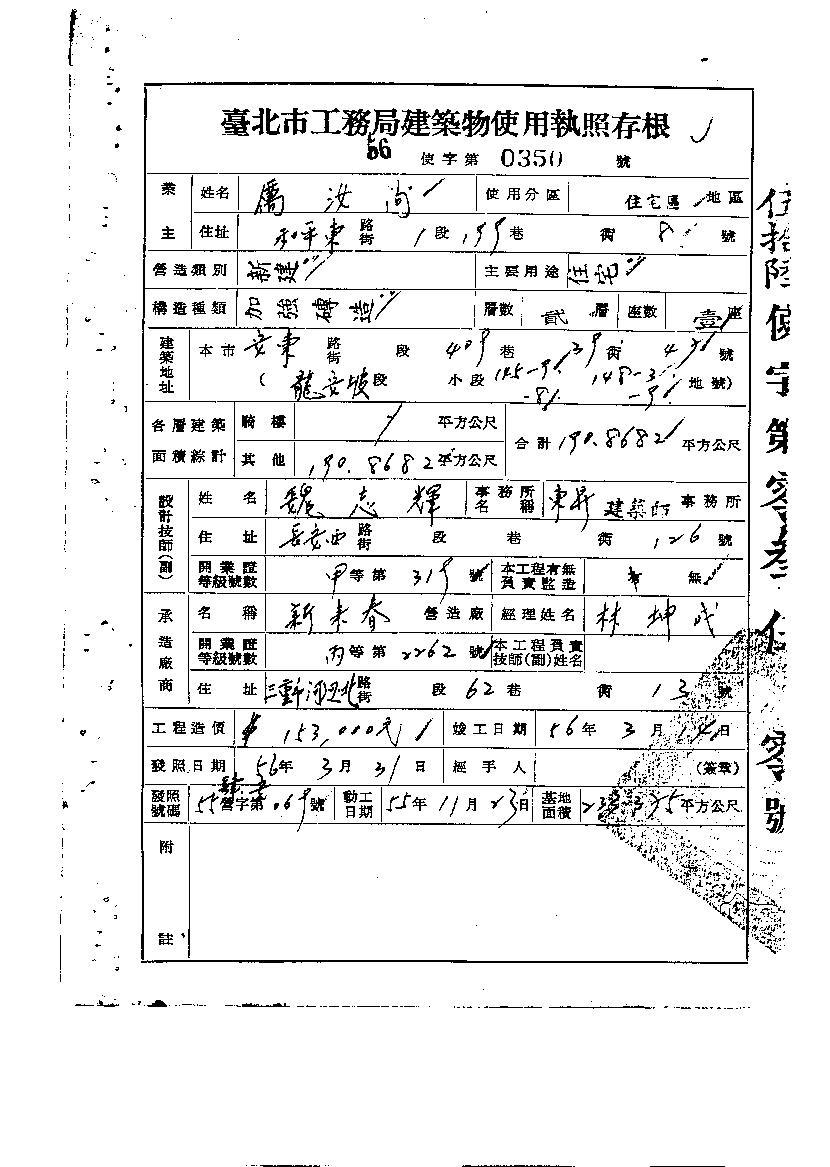 臺北市工務局建築物使用執照存根
56 使字第 0350 號
業主 姓名 汝 使用分區 住宅區 地區
住址 和平東 路街 1 段 199 巷 街 8 號
營造類別 新建 主要用途 住宅
構造種類 加強磚造 層數 貳 層 座數 壹 座
建築地址 本市 安東 路街 段 409 巷 39 街 號
( 龍安坡 段 小段 145-9 148-3 地號)
-8 -9
各層建築面積綜計 騎樓 平方公尺 合計 190.8682 平方公尺
其他 190.8682 平方公尺
設計技師(副) 姓名 魏志輝 事務所名稱 東昇建築師 事務所
住址 長安西 路街 段 巷 街 126 號
開業證等級號數 甲等第 319 號 本工程有無負責監造 無
承造廠商 名稱 新來春 營造廠 經理姓名 林坤成
開業證等級號數 丙等第 2262 號 本工程負責技師(副)姓名
住址 三重市河北 路街 段 62 巷 街 13 號
工程造價 153,000元 竣工日期 56年 3月 14日
發照日期 56年 3月 31日 經手人 (簽章)
發照號碼 55營字第 069 號 動工日期 55年 11月 23日 基地面積 平方公尺
附註
伍拾陸使字第零叁伍零號